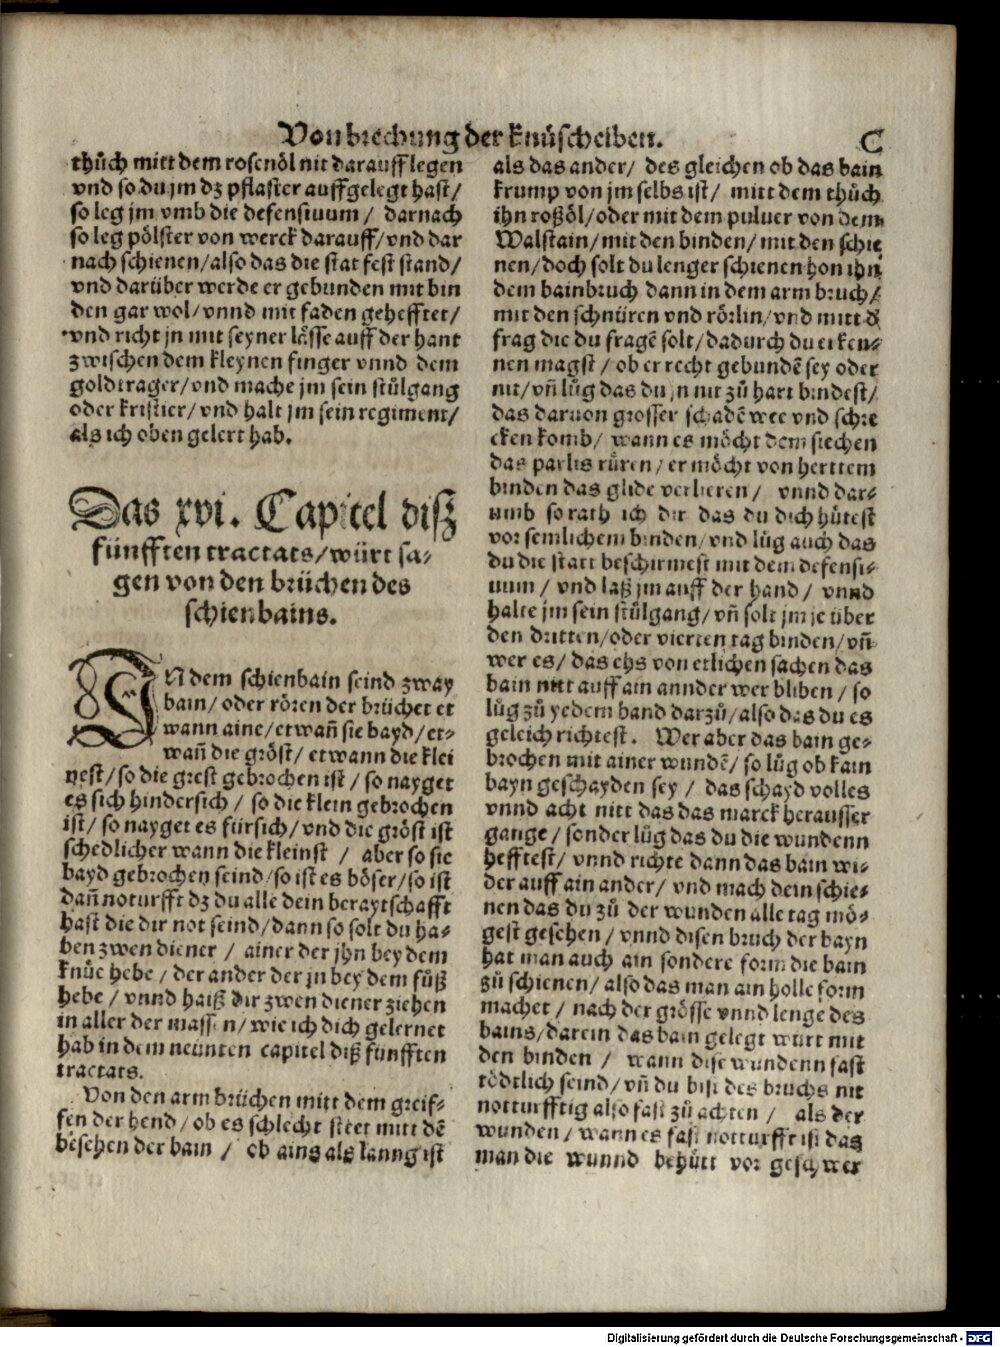 Von brechung der knüscheiben. C
thůch mitt dem rosenöl nit darauff legen
vnd so du jm dz pflaster auffgelegt hast/
so leg jm vmb die defensiuum / darnach
so leg pölster von werck darauff/vnd dar
nach schienen/also das die stat fest stand/
vnd darüber werde er gebunden mit bin
den gar wol/vnnd mit faden gehefftet/
vnd richt jn mit seyner låsse auff der hant
zwischen dem kleynen finger vnnd dem
goldtrager/vnd mache jm sein stůlgang
oder kristier/vnd halt jm sein regiment/
als ich oben gelert hab.
Das xvi. Capitel diß
fünfften tractats/würt sa-
gen von den brüchen des
schienbains.
IN dem schienbain seind zway
bain/oder rören der brüchet et
wann aine/etwañ sie bayd/et-
wañ die gröst/etwann die klei
nest/so die grest gebrochen ist / so nayget
es sich hindersich / so die klein gebrochen
ist/ so nayget es fürsich/vnd die gröst ist
schedlicher wann die kleinst / aber so sie
bayd gebrochen seind/so ist es böser/so ist
dañ noturfft dz du alle dein beraytschafft
hast die dir not seind/dann so solt du ha-
ben zwen diener / ainer der jhn bey dem
knüe hebe / der ander der jn bey dem fůß
hebe / vnnd haiß dir zwen diener ziehen
in aller der massen/wie ich dich gelernet
hab in dem neünten capitel diß fünfften
tractats.
Von den arm brüchen mitt dem greif-
fen der hend/ob es schlecht steet mitt dē
besehen der bain / ob ains als lanng ist
als das ander/ des gleichen ob das bain
krump von jm selbs ist/ mitt dem thůch
ihn roßöl/oder mit dem puluer von dem
Walstain/mit den binden/mit den schie
nen/doch solt du lenger schienen hon ihn
dem bainbruch dann in dem arm bruch/
mit den schnüren vnd rörlin/vnd mitt d
frag die du fragē solt/dadurch du erken-
nen magst / ob er recht gebundē sey oder
nit/vñ lůg das du jn nit zů hart bindest/
das daruon grosser schadē wee vnd schre
cken komb/ wann es möcht dem siechen
das parlis rüren/er möcht von herttem
binden das glide verlieren / vnnd dar-
umb so rath ich dir das du dich hůtest
vor semlichem binden/vnd lůg auch das
du die statt beschirmest mit dem defensi-
uum / vnd laß jm auff der hand / vnnd
halte jm sein stůlgang/vñ solt jm je über
den dritten/oder vierten tag binden/vñ
wer es/das ehs von etlichen sachen das
bain nitt auff ain annder wer bliben / so
lůg zů yedem band darzů/also das du es
geleich richtest. Wer aber das bain ge-
brochen mit ainer wundē/so lůg ob kain
bayn geschayden sey / das schayd volles
vnnd acht nitt das das marck herausser
gange/sonder lůg das du die wundenn
hefftest/ vnnd richte dann das bain wi-
der auff ain ander/ vnd mach dein schie-
nen das du zů der wunden alle tag mö-
gest gesehen/vnnd disen bruch der bayn
hat man auch ain sondere form die bain
zů schienen/also das man ain holle form
machet / nach der grösse vnnd lenge des
bains/darein das bain gelegt würt mit
den binden / wann dise wundenn fast
tödtlich seind/vñ du bist des bruchs nit
notturfftig also fast zů achten / als der
wunden/wann es fast notturfft ist das
man die wunnd behütt vor geschwer
Digitalisierung gefördert durch die Deutsche Forschungsgemeinschaft - DFG